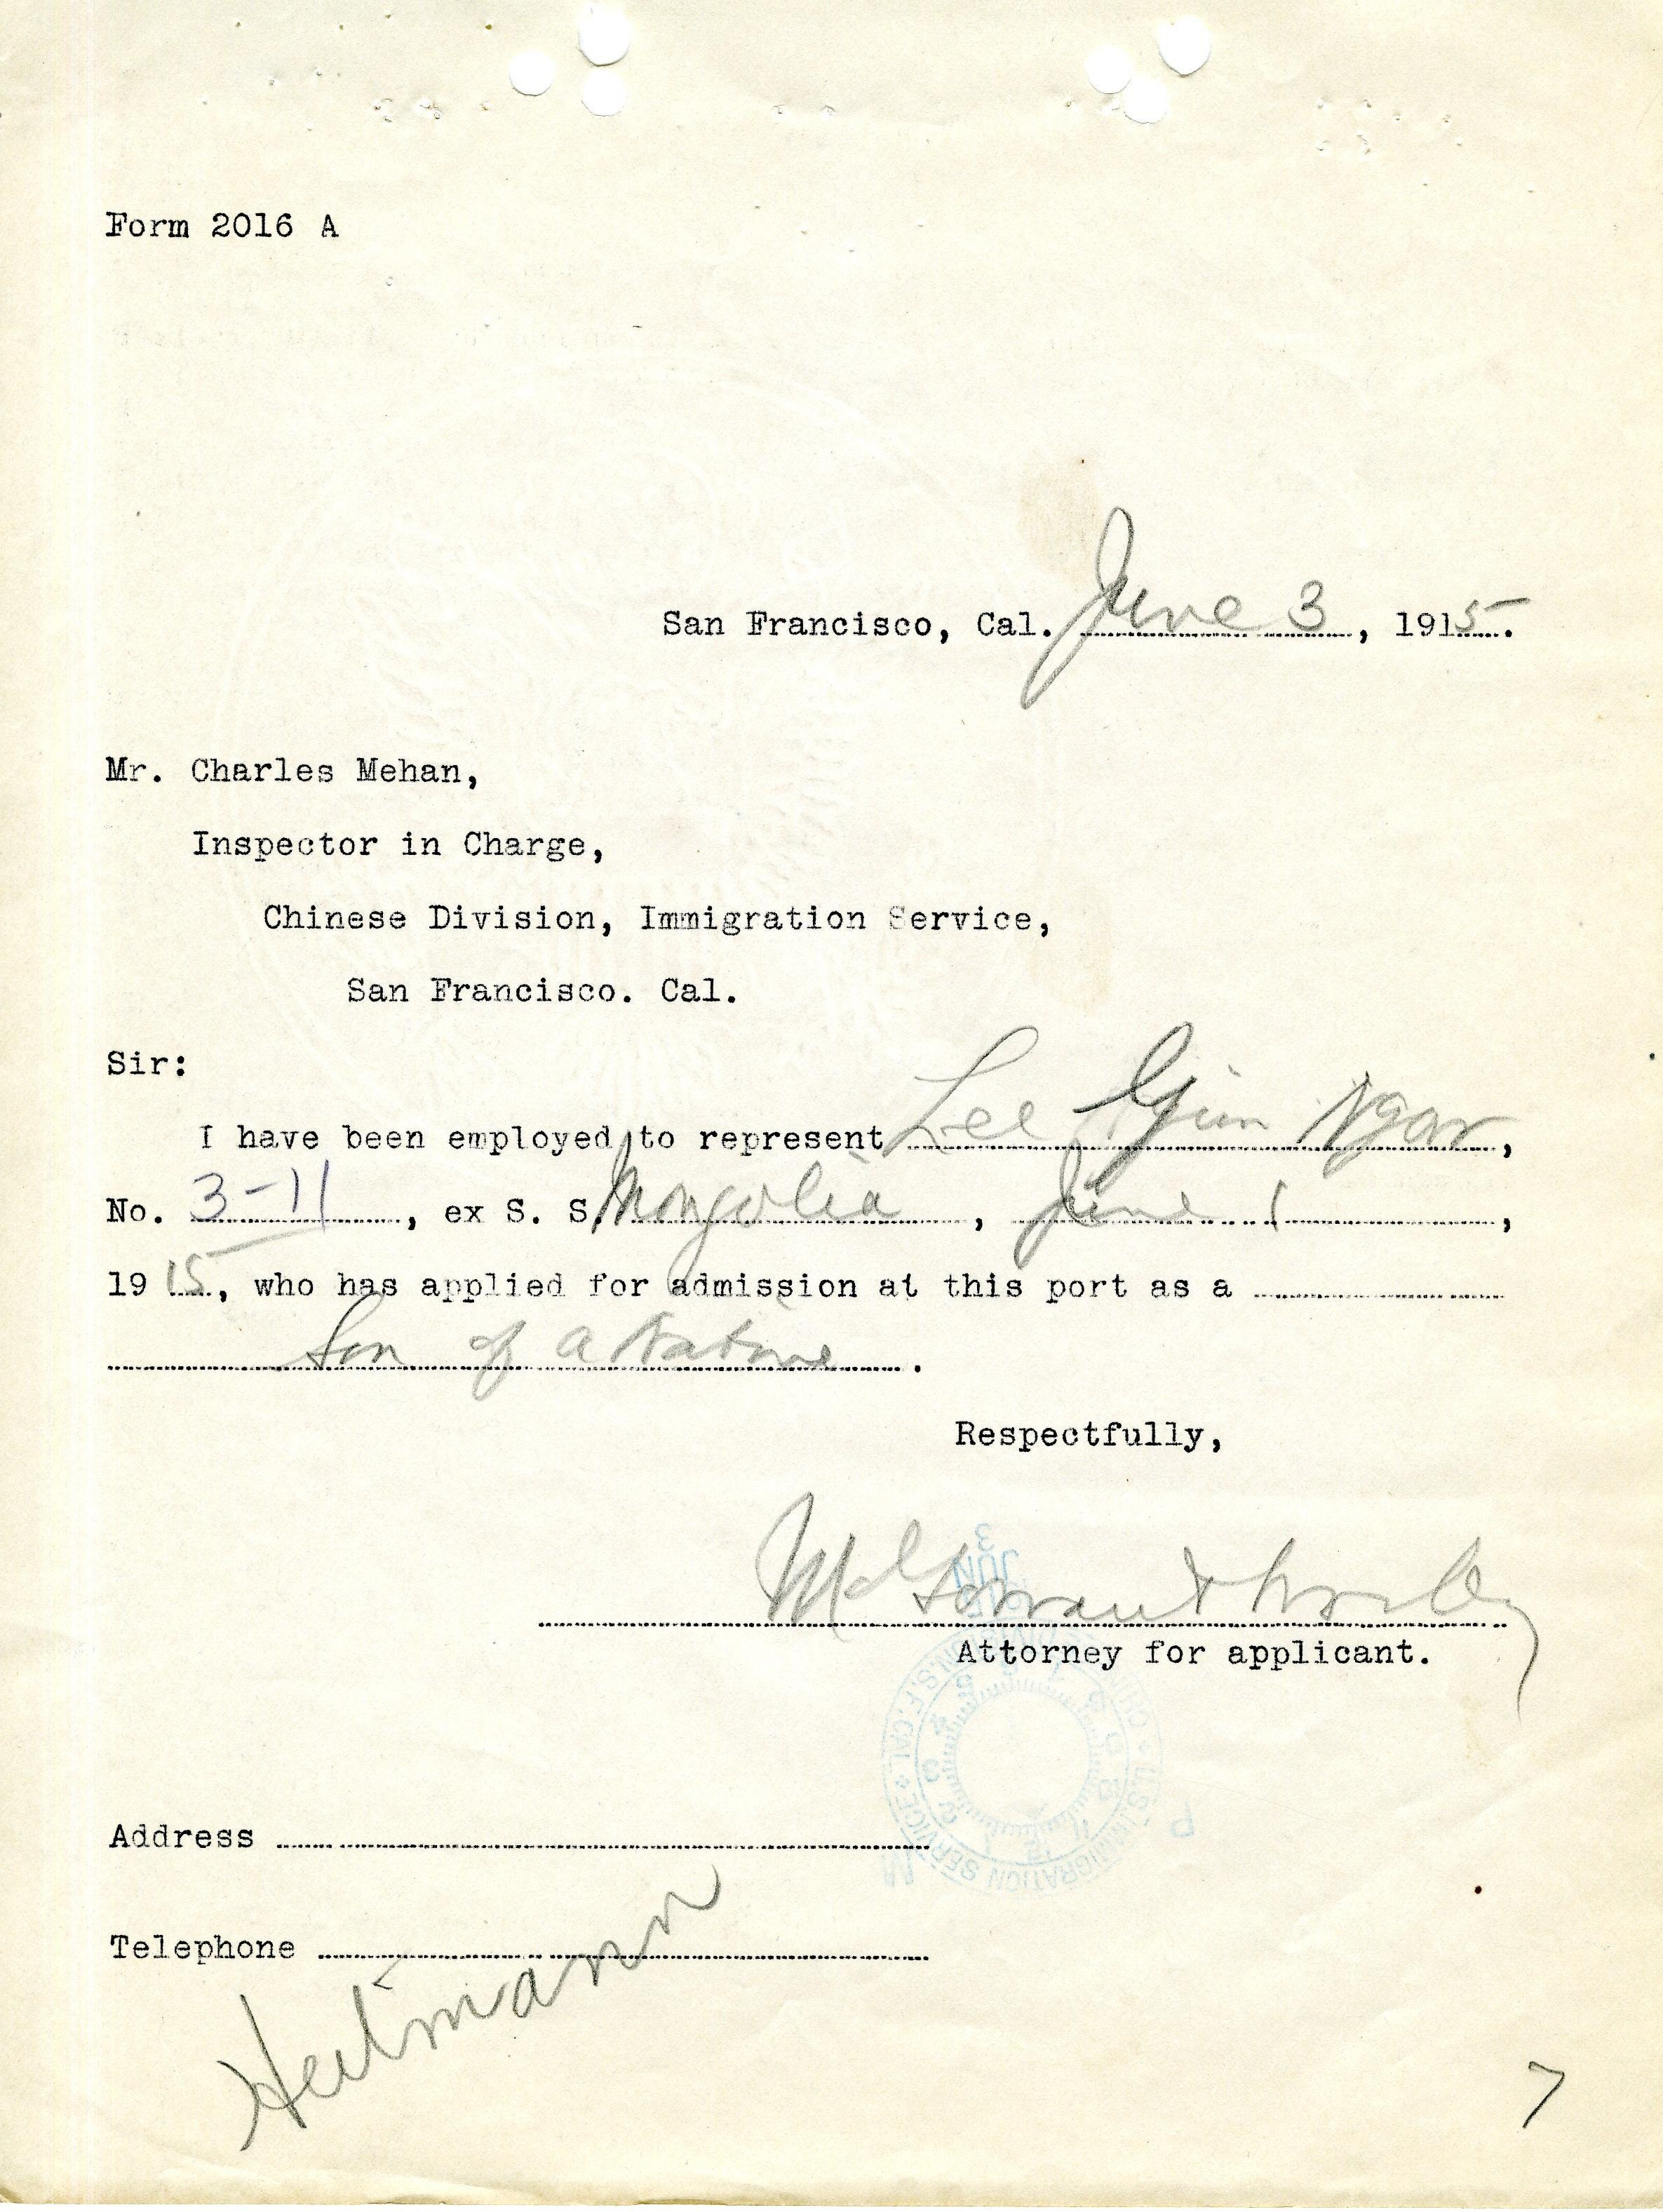 Form 2016 A
San Francisco, Cal. June 3, 1915.
Mr. Charles Mehan,
Inspector in Charge,
Chinese Division, Immigration Service,
San Francisco. Cal.
Sir:
I have been employed to represent Lee Gim Ngar,
No. 3-11, ex S. S. Mongolia, June 1,
1915, who has applied for admission at this port as a
Son of a Native.
Respectfully,
McGowan & Worley
JUN 3
Attorney for applicant.
U.S. IMMIGRATION SERVICE S.F. CAL.
Address
Telephone
Heitmann
7